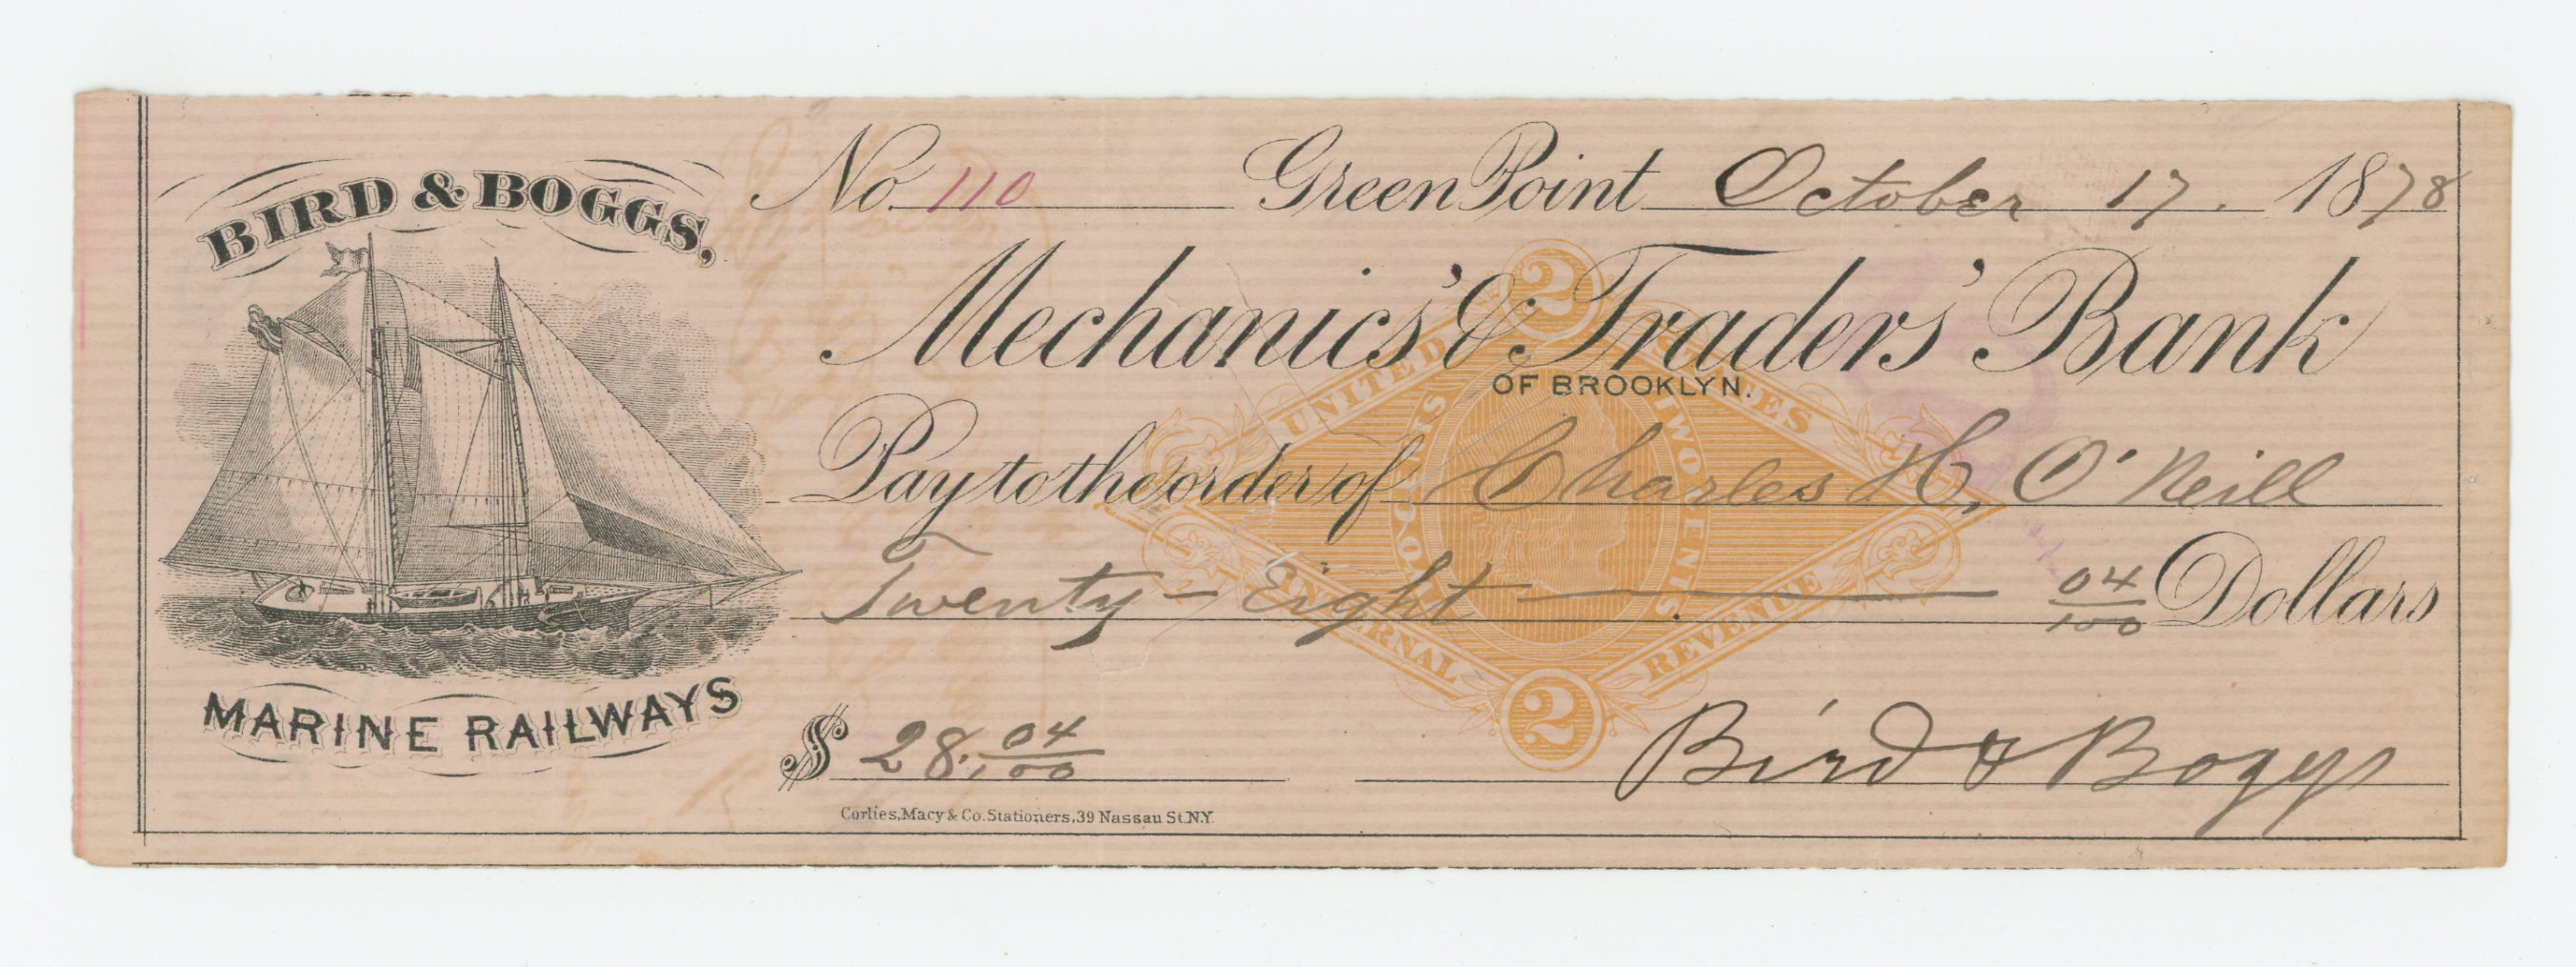 BIRD & BOGGS,
MARINE RAILWAYS
No 110 Green Point October 17. 1878
Mechanics' & Traders' Bank
OF BROOKLYN.
Pay to the order of Charles H. O'Neill
Twenty-Eight 04/100 Dollars
$ 28. 04/100 Bird & Boggs
Corlies, Macy & Co. Stationers, 39 Nassau St. N.Y.
2
UNITED STATES
TWO CENTS
INTERNAL REVENUE
2